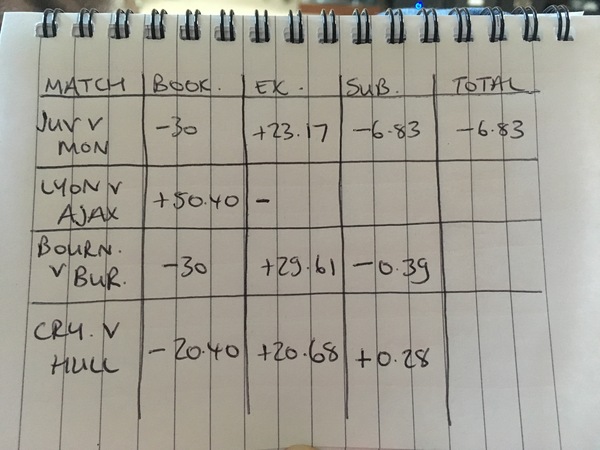 MATCH BOOK. EX. SUB. TOTAL
JUV V MON -30 +23.17 -6.83 -6.83
LYON V AJAX +50.40 -
BOURN. V BUR. -30 +29.61 -0.39
CRY. V HULL -20.40 +20.68 +0.28